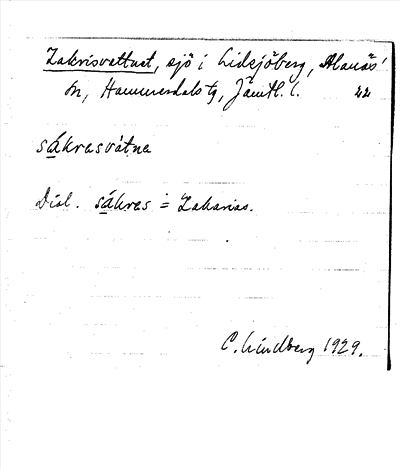 Zakrisvattnet, sjö i Lidsjöberg, Alanäs'
sn, Hammerdals tg, Jämtl. l. 22
sákrasvátna
Dial. sákras = Zakarias.
C. Lindberg 1929.